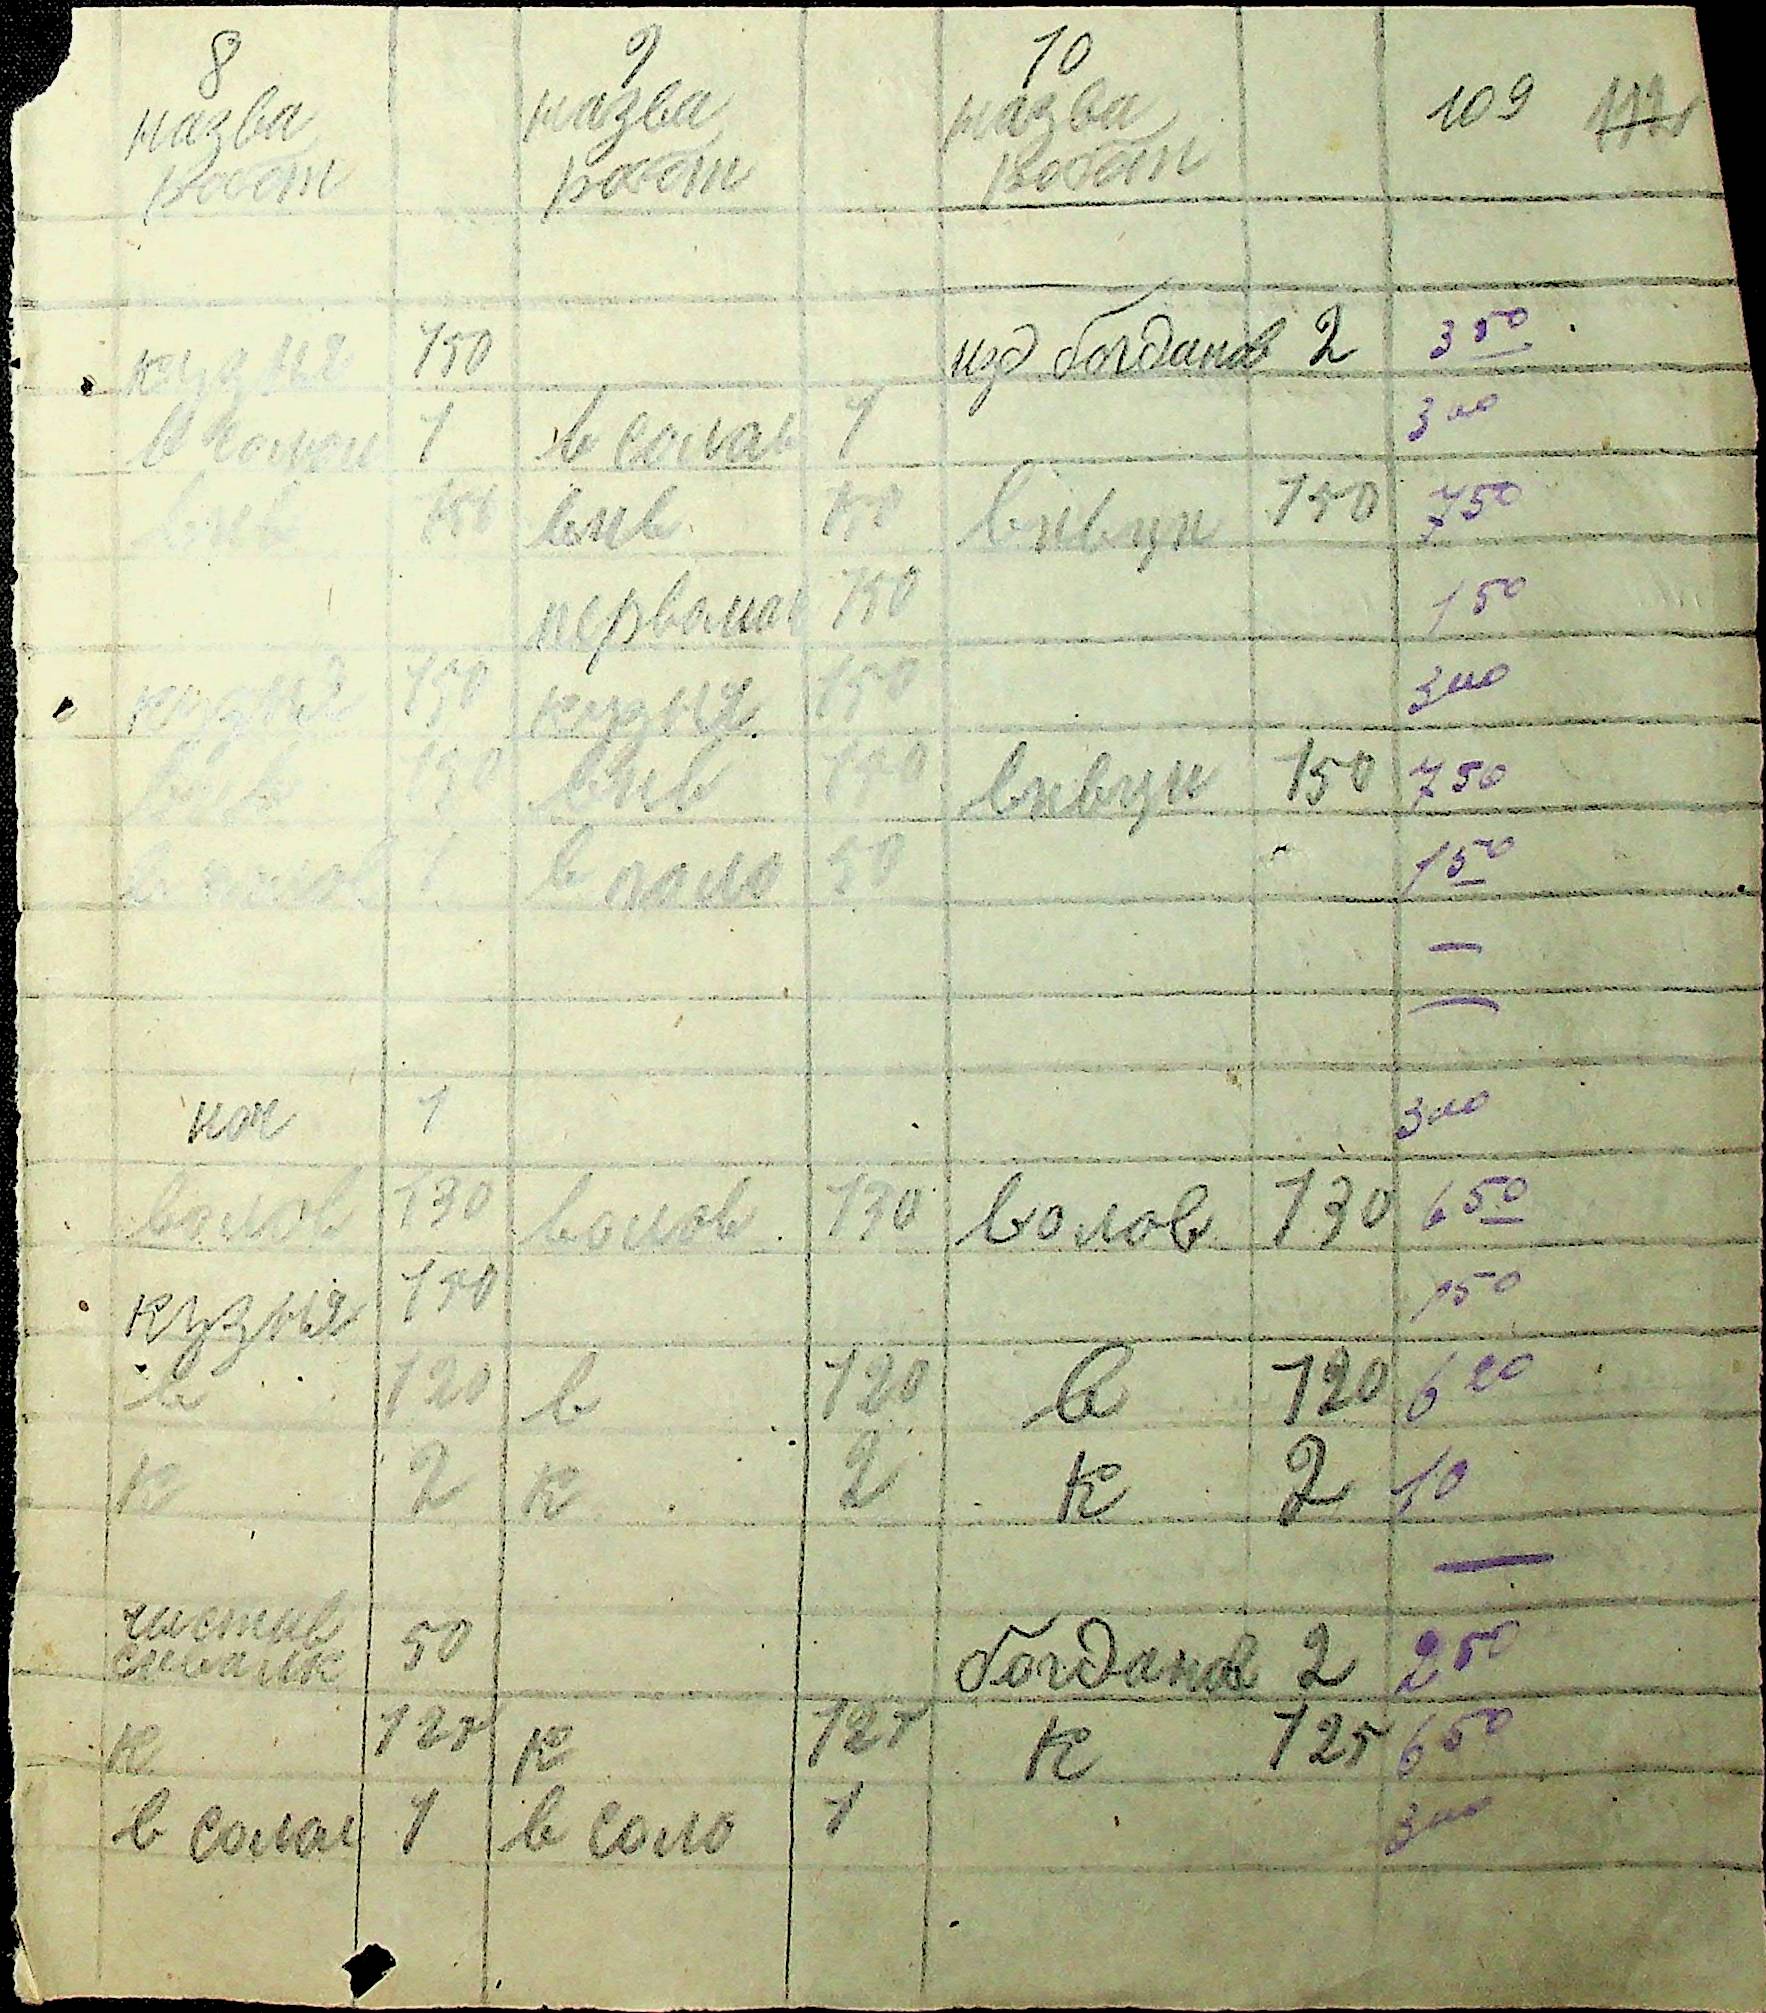 8 9 10
назва назва назва 109
робот робот робот
кузня 150 изд богданов 2 3 50
1 в солом 1 3 00
внв 150 внв 150 внвци 150 7 50
первомай 150 1 50
кузня 150 кузня 150 3 00
внв 150 внв 150 внвци 150 7 50
1 в поло 50 1 50
—
—
коч 1 3 00
волов 130 волов 130 волов 130 6 50
кузня 150 1 50
в 120 в 120 в 120 6 20
к 2 к 2 к 2 10
—
чистив
50 богданов 2 2 50
к 125 к 125 к 125 6 50
в солом 1 в соло 1 3 00